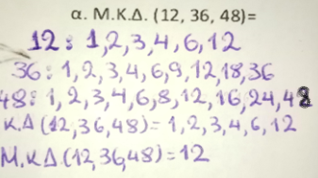 α. Μ.Κ.Δ. (12, 36, 48)=
12: 1,2,3,4,6,12
36: 1,2,3,4,6,9,12,18,36
48: 1,2,3,4,6,8,12,16,24,48
Κ.Δ (12,36,48)= 1,2,3,4,6,12
Μ.Κ.Δ.(12,36,48)=12